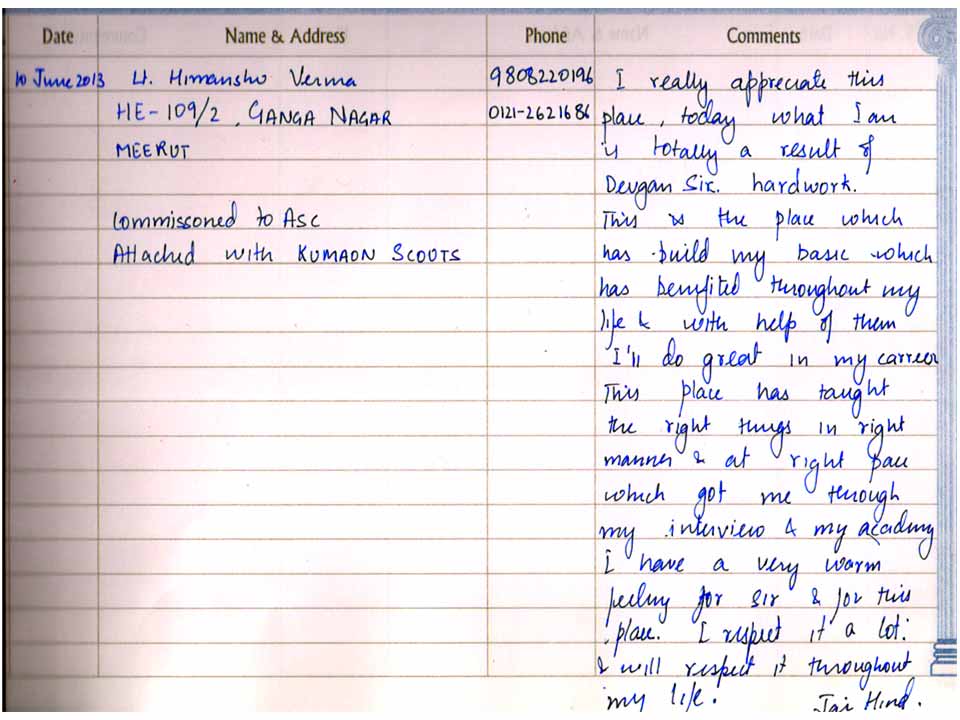 Date Name & Address Phone Comments
10 June 2013 Lt. Himanshu Verma 9808220196 I really appreciate this
HE-109/2, GANGA NAGAR 0121-2621686 place, today what I am
MEERUT is totally a result of
Devgan Sir. hardwork.
Commissoned to ASC This is the place which
Attached with KUMAON SCOUTS has build my basic which
has benifited throughout my
life & with help of them
I'll do great in my carreer
This place has taught
the right things in right
manner & at right pace
which got me through
my interview & my academy
I have a very warm
feeling for sir & for this
place. I respect it a lot.
& will respect it throughout
my life. Jai Hind.